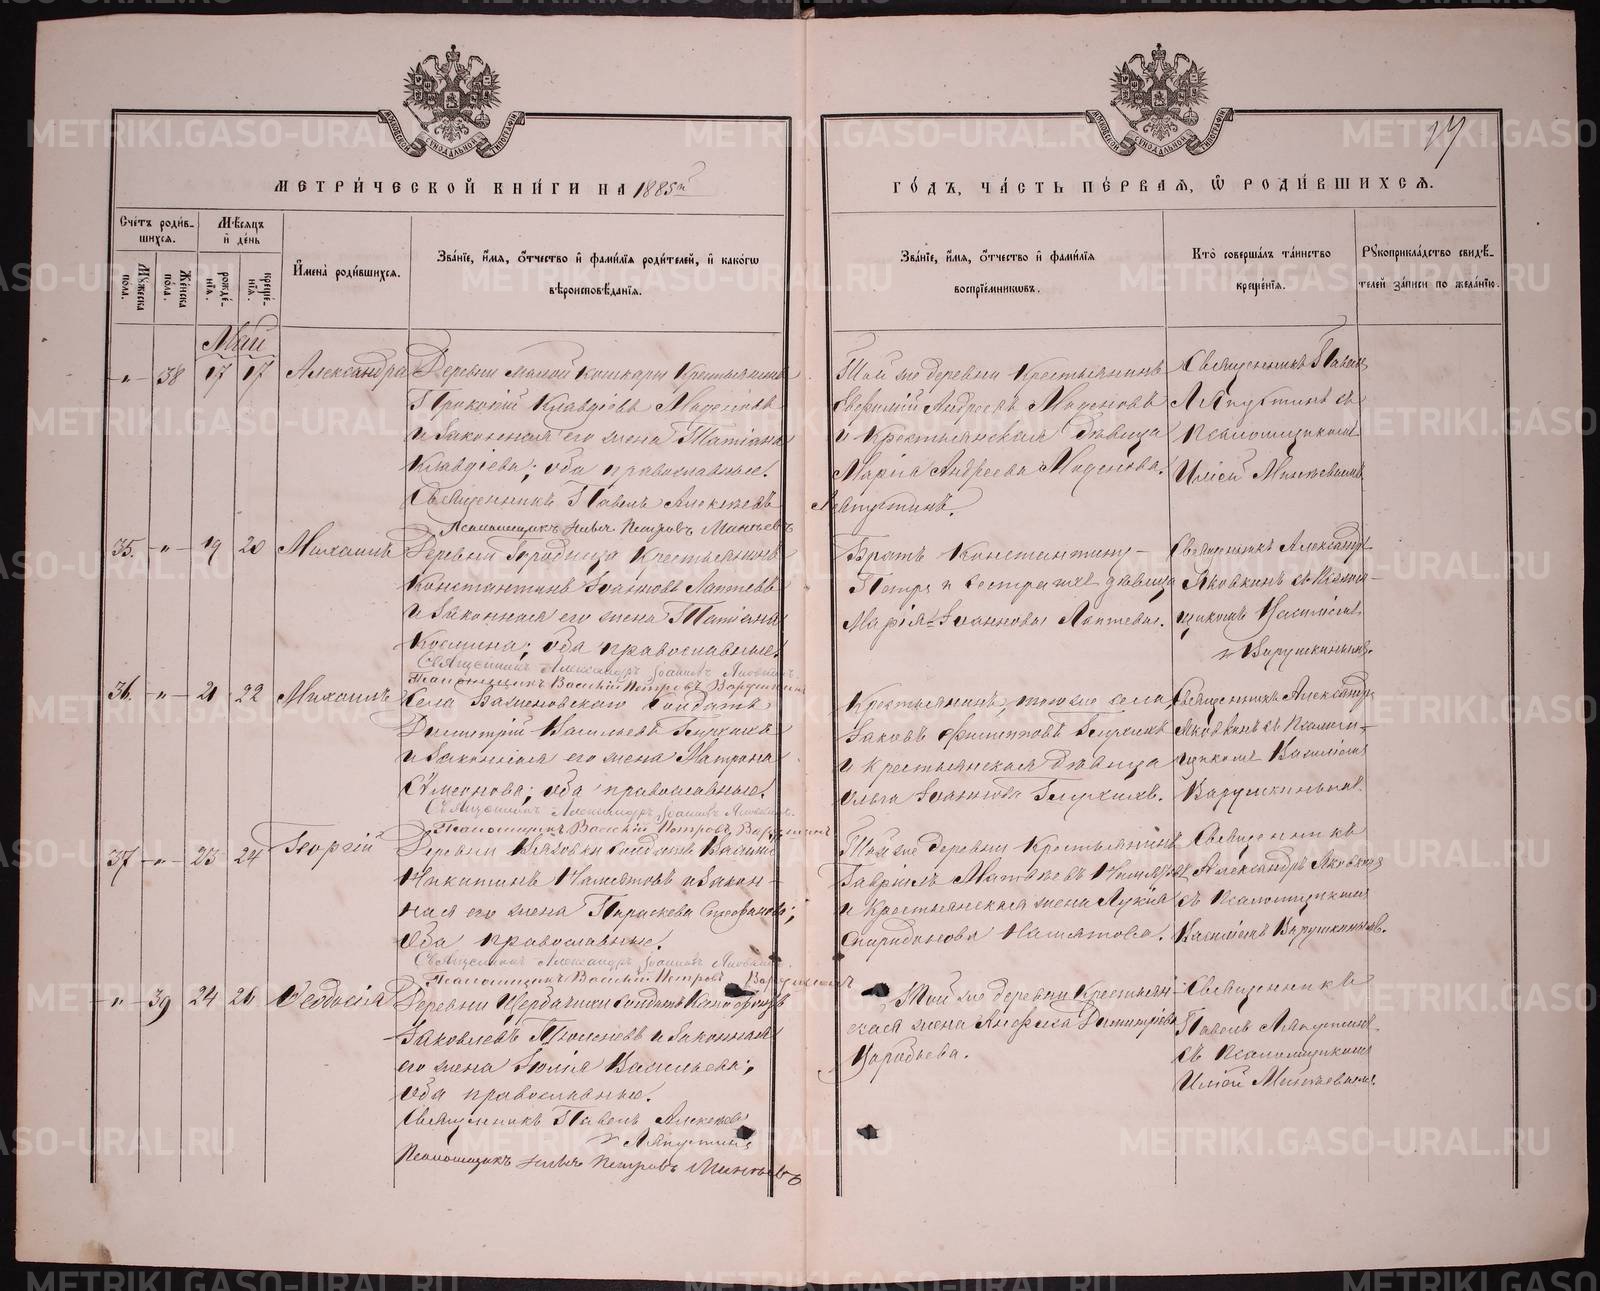 МЕТРИ́ЧЕСКОЙ КНИ́ГИ НА 1885й
ГО́ДЪ, ЧА́СТЬ ПЕ́РВАЯ, Ѡ РОДИ́ВШИХСЯ.
17
Сче́тъ роди́в-
шихся.
Му́жеска по́ла.
Же́нска по́ла.
Мѣ́сяцъ и де́нь
рожде́-нїя.
креще́-нїя.
И́мена роди́вшихся.
Зва́нїе, и́мя, о́тчество и фами́лїя роди́телей, и како́гѡ
вѣроисповѣ́данїя.
Зва́нїе, и́мя, о́тчество и фами́лїя
воспрїе́мникѡвъ.
Кто̀ соверша́лъ та́инство
креще́нїя.
Рꙋкоприкла́дство свидѣ́-
телей за́писи по жела́нїю.
Май
-„- 38 17 17 Александра
Деревни Малой Кошкары Крестьянинъ
Прокопій Клавдіевъ
и законная его жена Татіана
Клавдіева; оба православные.
Священникъ Павелъ Алексѣевъ
Псаломщикъ Илья Петровъ
Той же деревни Крестьянинъ
Андреевъ
и Крестьянская дѣвица
Марія Андреева
Священникъ Павелъ
съ
Псаломщикомъ
Иліей
35. -„- 19 20 Михаилъ
Деревни Городища Крестьянинъ
Константинъ Іоанновъ Лаптевъ
и законная его жена Татіана
Космина; оба православные.
Священникъ Александръ Іоанновъ Яковкинъ
Псаломщикъ Василій Петровъ Варушкинъ
Братъ Константину-
Петръ и сестра ихъ дѣвица
Марія Іоанновы Лаптевы.
Священникъ Александръ
Яковкинъ съ Псалом-
щикомъ Василіемъ
Варушкинымъ.
36. -„- 21 22 Михаилъ
Села Баженовскаго Солдатъ
Димитрій Васильевъ Глухихъ
и законная его жена Матрона
Симеонова; оба православные.
Священникъ Александръ Іоанновъ Яковкинъ
Псаломщикъ Василій Петровъ Варушкинъ
Крестьянинъ того же села
Іаковъ Филипповъ Глухихъ
и крестьянская дѣвица
Ольга Іоаннова Глухихъ.
Священникъ Александръ
Яковкинъ съ Псалом-
щикомъ Василіемъ
Варушкинымъ.
37 -„- 23 24 Георгій
Деревни Вязовки Солдатъ Василій
Никитинъ и закон-
ная его жена Параскева Стефанова;
оба православные.
Священникъ Александръ Іоанновъ Яковкинъ
Псаломщикъ Василій Петровъ Варушкинъ
Той же деревни Крестьянинъ
Гавріилъ Матвѣевъ
и Крестьянская жена Лукія
Спиридонова
Священникъ
Александръ Яковкинъ
съ Псаломщикомъ
Василіемъ Варушкинымъ.
-„- 39 24 26 Ѳеодосія
Деревни Щербачихи Солдатъ
Іаковлевъ и законная
его жена Юлія Васильева;
оба православные.
Священникъ Павелъ Алексѣевъ
Псаломщикъ Илья Петровъ
Той же деревни Крестьян-
ская жена Анфиса Димитріева
Воробьева.
Священникъ
Павелъ
съ Псаломщикомъ
Иліей